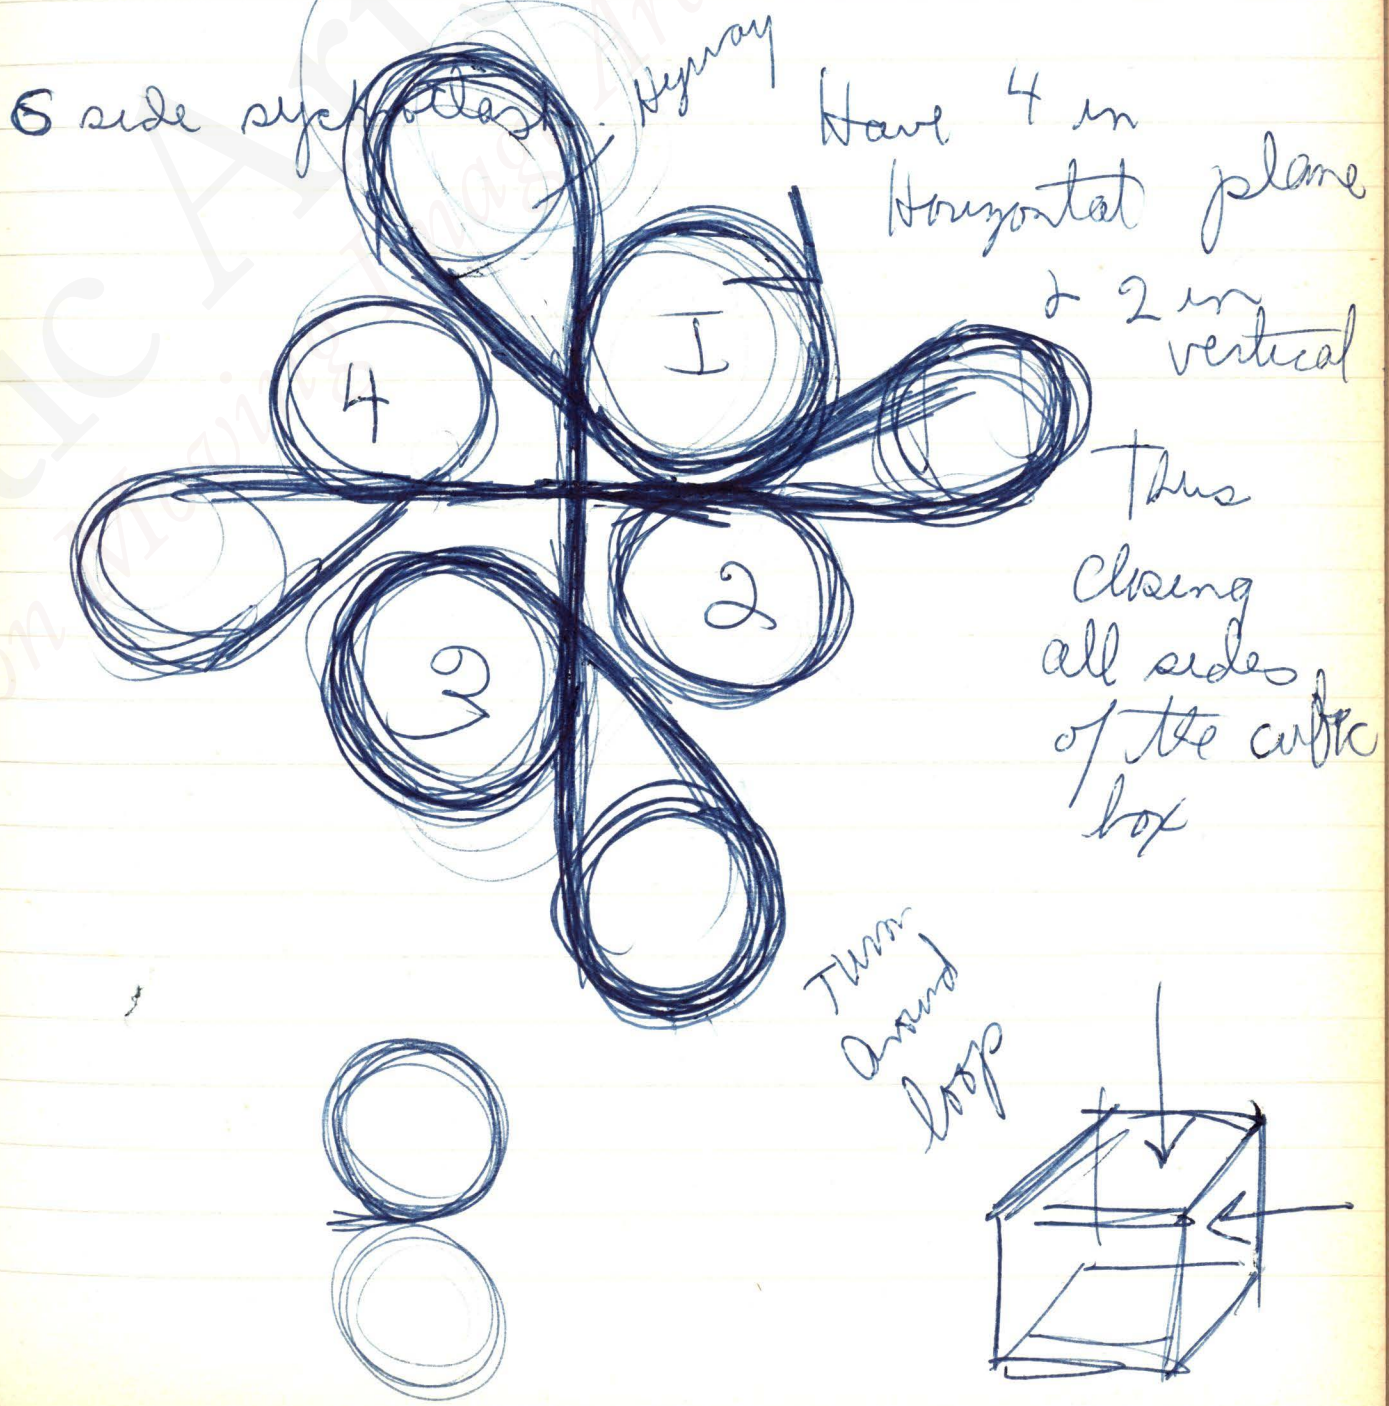 6 side
Hyway
Have 4 in
Horizontal plane
& 2 in
vertical
Thus
closing
all sides
of the cubic
box
1
4
2
3
Turn
around
loop